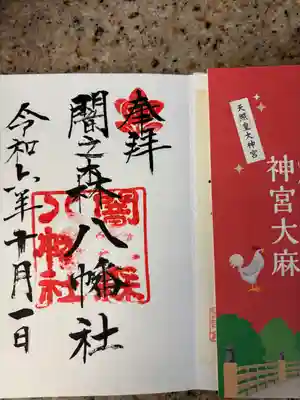 奉拝
闇之森八幡社
令和六年十月一日
闇森
八幡社
天照皇大神宮
神宮大麻